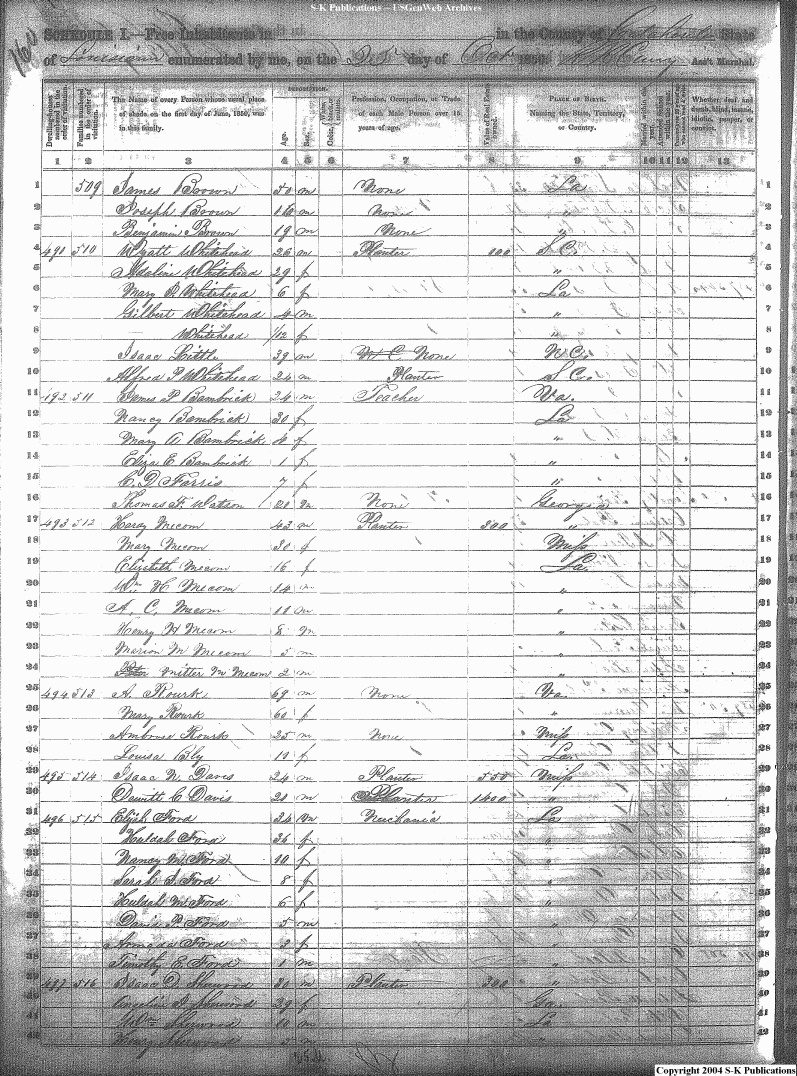 S-K Publications – USGenWeb Archives
160
SCHEDULE I.—Free Inhabitants in in the County of Catahoula State
of Louisiana enumerated by me, on the day of Oct 1850. Ass't Marshal.
Dwelling-houses numbered in the order of visitation.
Families numbered in the order of visitation.
The Name of every Person whose usual place of abode on the first day of June, 1850, was in this family.
DESCRIPTION.
Age.
Sex.
Color, White, black, or mulatto.
Profession, Occupation, or Trade of each Male Person over 15 years of age.
Value of Real Estate owned.
PLACE OF BIRTH. Naming the State, Territory, or Country.
Whether deaf and dumb, blind, insane, idiotic, pauper, or convict.
1 2 3 4 5 6 7 8 9 10 11 12 13
1 509 James Brown 50 m None La 1
2 Joseph Brown 16 m None " 2
3 Benjamin Brown 19 m None " 3
4 491 510 Wyatt Whitehead 26 m Planter 100 S C. 4
5 Adaline Whitehead 29 f " 5
6 Mary Whitehead 6 f La 6
7 Gilbert Whitehead 4 m " 7
8 Whitehead 1/12 f " 8
9 Isaac Little 39 m None N.C. 9
10 Alfred P Whitehead 24 m Planter S C. 10
11 192 511 James P Bambrick 24 m Teacher Va. 11
12 Nancy Bambrick 30 f La 12
13 Mary A Bambrick 4 f " 13
14 Eliza E. Bambrick 1 f " 14
15 C. D Farris 7 f " 15
16 Thomas F. Watson 20 m None Georgia 16
17 493 512 Hardy Mecom 43 m Planter 300 " 17
18 Mary Mecom 30 f Miss 18
19 Elizibeth Mecom 16 f La. 19
20 Wm H Mecom 14 m " 20
21 A. C. Mecom 11 m " 21
22 Henry H Mecom 8 m " 22
23 Marion M Mecom 5 m " 23
24 Mitter M Mecom 2 m " 24
25 494 513 A. Rourk 69 m None Va. 25
26 Mary Rourk 60 f " 26
27 Ambrose Rourk 25 m None Miss 27
28 Louisa Bly 11 f La. 28
29 495 514 Isaac N. Daves 24 m Planter 550 Miss 29
30 Dewitt C Davis 21 m Planter 1400 " 30
31 496 515 Elijah Ford 34 m Mechanic La 31
32 Huldah Ford 36 f " 32
33 Nancy M. Ford 10 f " 33
34 Sarah S. Ford 8 f " 34
35 Huldah M Ford 6 f " 35
36 David P. Ford 5 m " 36
37 Armeda Ford 2 f " 37
38 Timothy E. Ford 1 m " 38
39 497 516 Isaac D. Sherwood 30 m Planter 200 " 39
40 Angelin Sherwood 29 f Ga. 40
41 Wm Sherwood 10 m La 41
42 Henry Sherwood 2 m " 42
Copyright 2004 S-K Publications